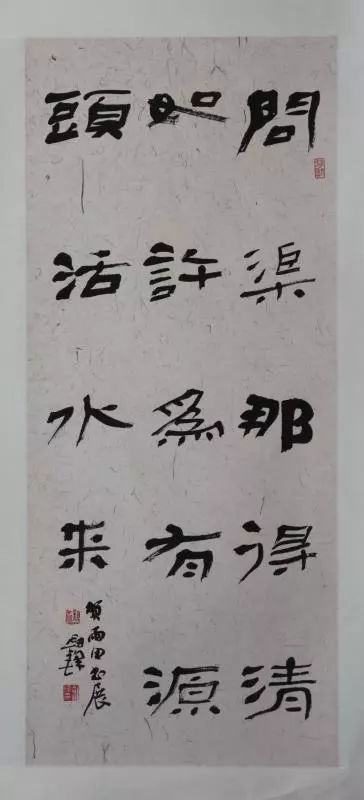 問渠那得清
如許為有源
頭活水来
賀雨田書展